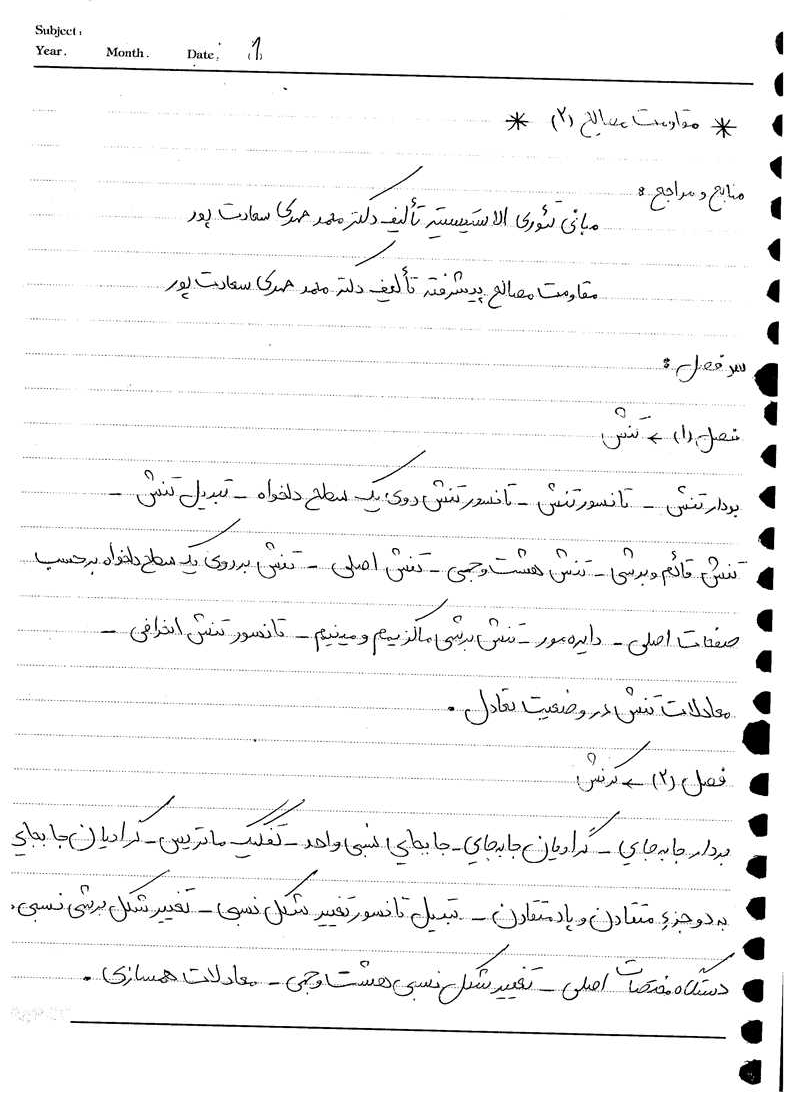 Subject:
Year. Month. Date: 1
* مقاومت مصالح (۲) *
منابع و مراجع:
مبانی تئوری الاستیسیته تألیف دکتر محمد مهدی سعادت پور
مقاومت مصالح پیشرفته تألیف دکتر محمد مهدی سعادت پور
سر فصل:
فصل (۱) ← تنش
بردار تنش - تانسور تنش - تانسور تنش روی یک سطح دلخواه - تبدیل تنش -
تنش قائم و برشی - تنش هشت وجهی - تنش اصلی - تنش بر روی یک سطح دلخواه بر حسب
صفحات اصلی - دایره مور - تنش برشی ماکزیمم و مینیمم - تانسور تنش انحرافی -
معادلات تنش در وضعیت تعادل.
فصل (۲) ← کرنش
بردار جابه‌جایی - گرادیان جابه‌جایی - جابجایی نسبی واحد - تفکیک ماتریس - گرادیان جابجایی
به دو جزء متقارن و پاد متقارن - تبدیل تانسور تغییر شکل نسبی - تغییر شکل برشی نسبی.
دستگاه مختصات اصلی - تغییر شکل نسبی هشت وجهی - معادلات همسازی.